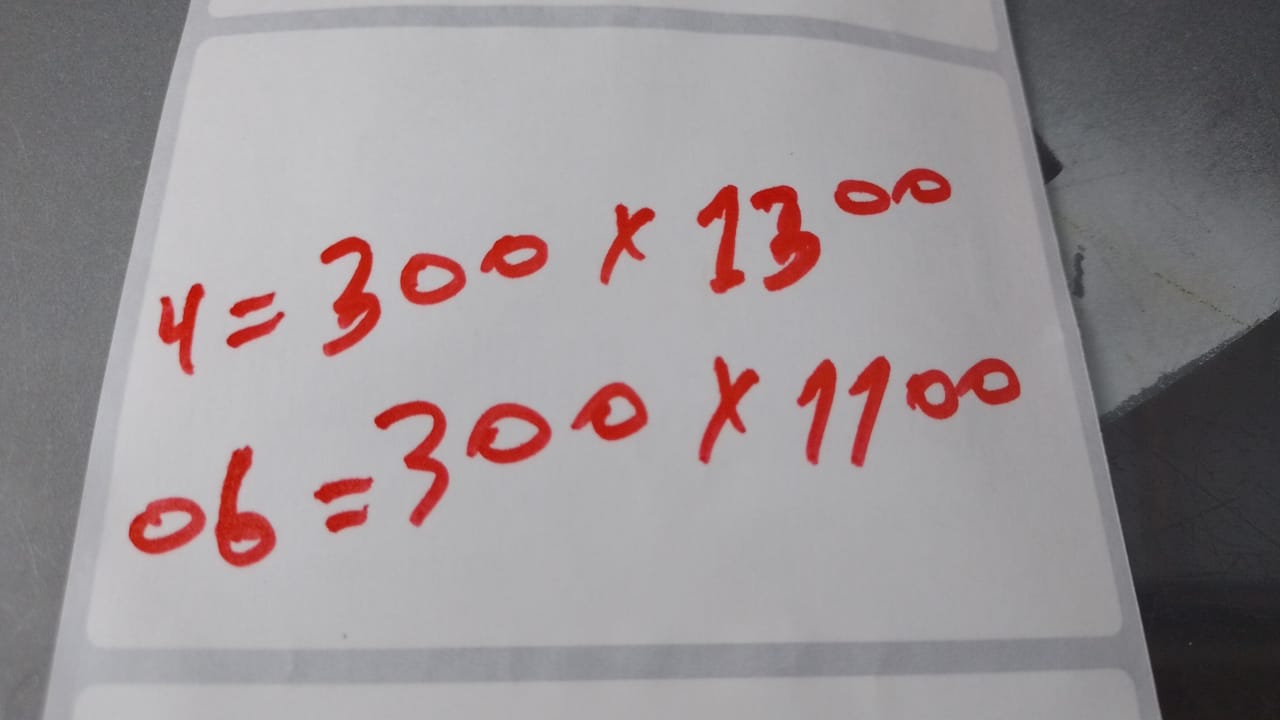 4=300x1300
06=300x1100